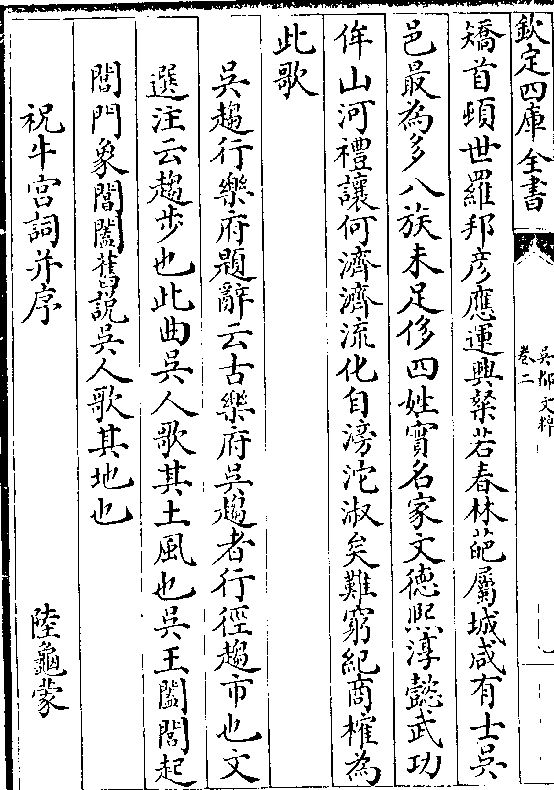 欽定四庫全書
吳都文粹
卷二
矯首頓世羅邦彦應運興粲若春林葩屬城咸有士吳
邑最為多八族未足侈四姓實名家文德熙淳懿武功
侔山河禮讓何濟濟流化自滂沱淑矣難窮紀商榷為
此歌
吳趨行樂府題辭云古樂府吳趨者行徑趨市也文
選注云趨步也此曲吳人歌其土風也吳王闔閭起
閶門象閶闔舊說吳人歌其地也
祝牛宫詞并序 陸龜蒙